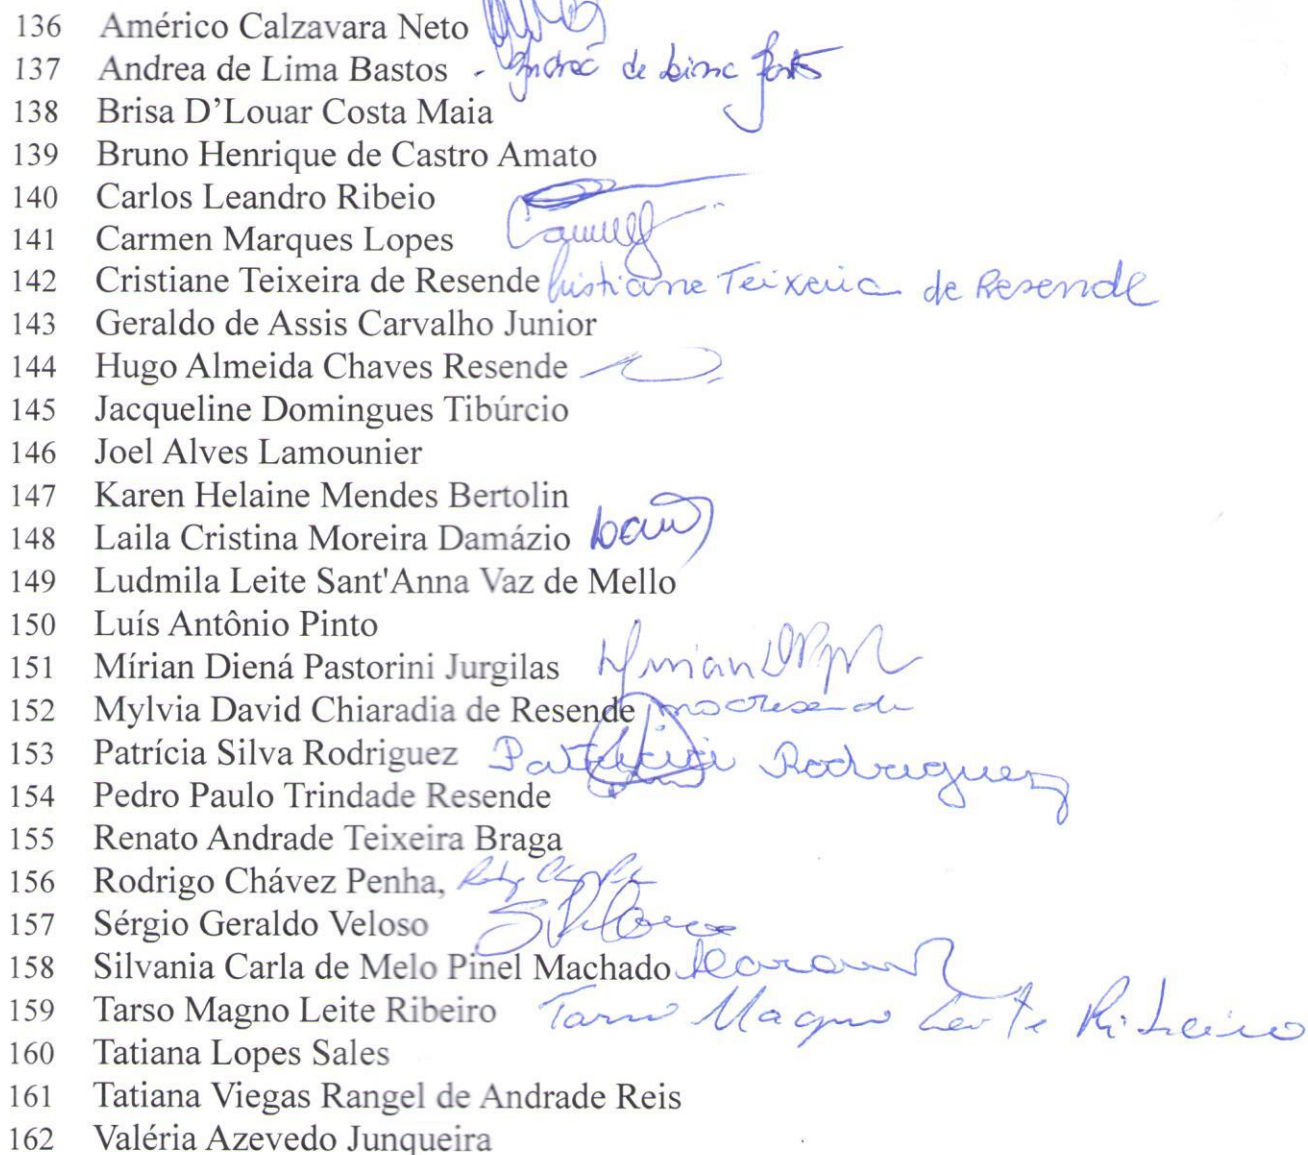 136 Américo Calzavara Neto
137 Andrea de Lima Bastos - de Lima
138 Brisa D’Louar Costa Maia
139 Bruno Henrique de Castro Amato
140 Carlos Leandro Ribeio
141 Carmen Marques Lopes
142 Cristiane Teixeira de Resende Cristiane Teixeira de Resende
143 Geraldo de Assis Carvalho Junior
144 Hugo Almeida Chaves Resende
145 Jacqueline Domingues Tibúrcio
146 Joel Alves Lamounier
147 Karen Helaine Mendes Bertolin
148 Laila Cristina Moreira Damázio
149 Ludmila Leite Sant'Anna Vaz de Mello
150 Luís Antônio Pinto
151 Mírian Diená Pastorini Jurgilas
152 Mylvia David Chiaradia de Resende
153 Patrícia Silva Rodriguez Patrícia Rodriguez
154 Pedro Paulo Trindade Resende
155 Renato Andrade Teixeira Braga
156 Rodrigo Chávez Penha,
157 Sérgio Geraldo Veloso
158 Silvania Carla de Melo Pinel Machado
159 Tarso Magno Leite Ribeiro Tarso Magno Leite Ribeiro
160 Tatiana Lopes Sales
161 Tatiana Viegas Rangel de Andrade Reis
162 Valéria Azevedo Junqueira